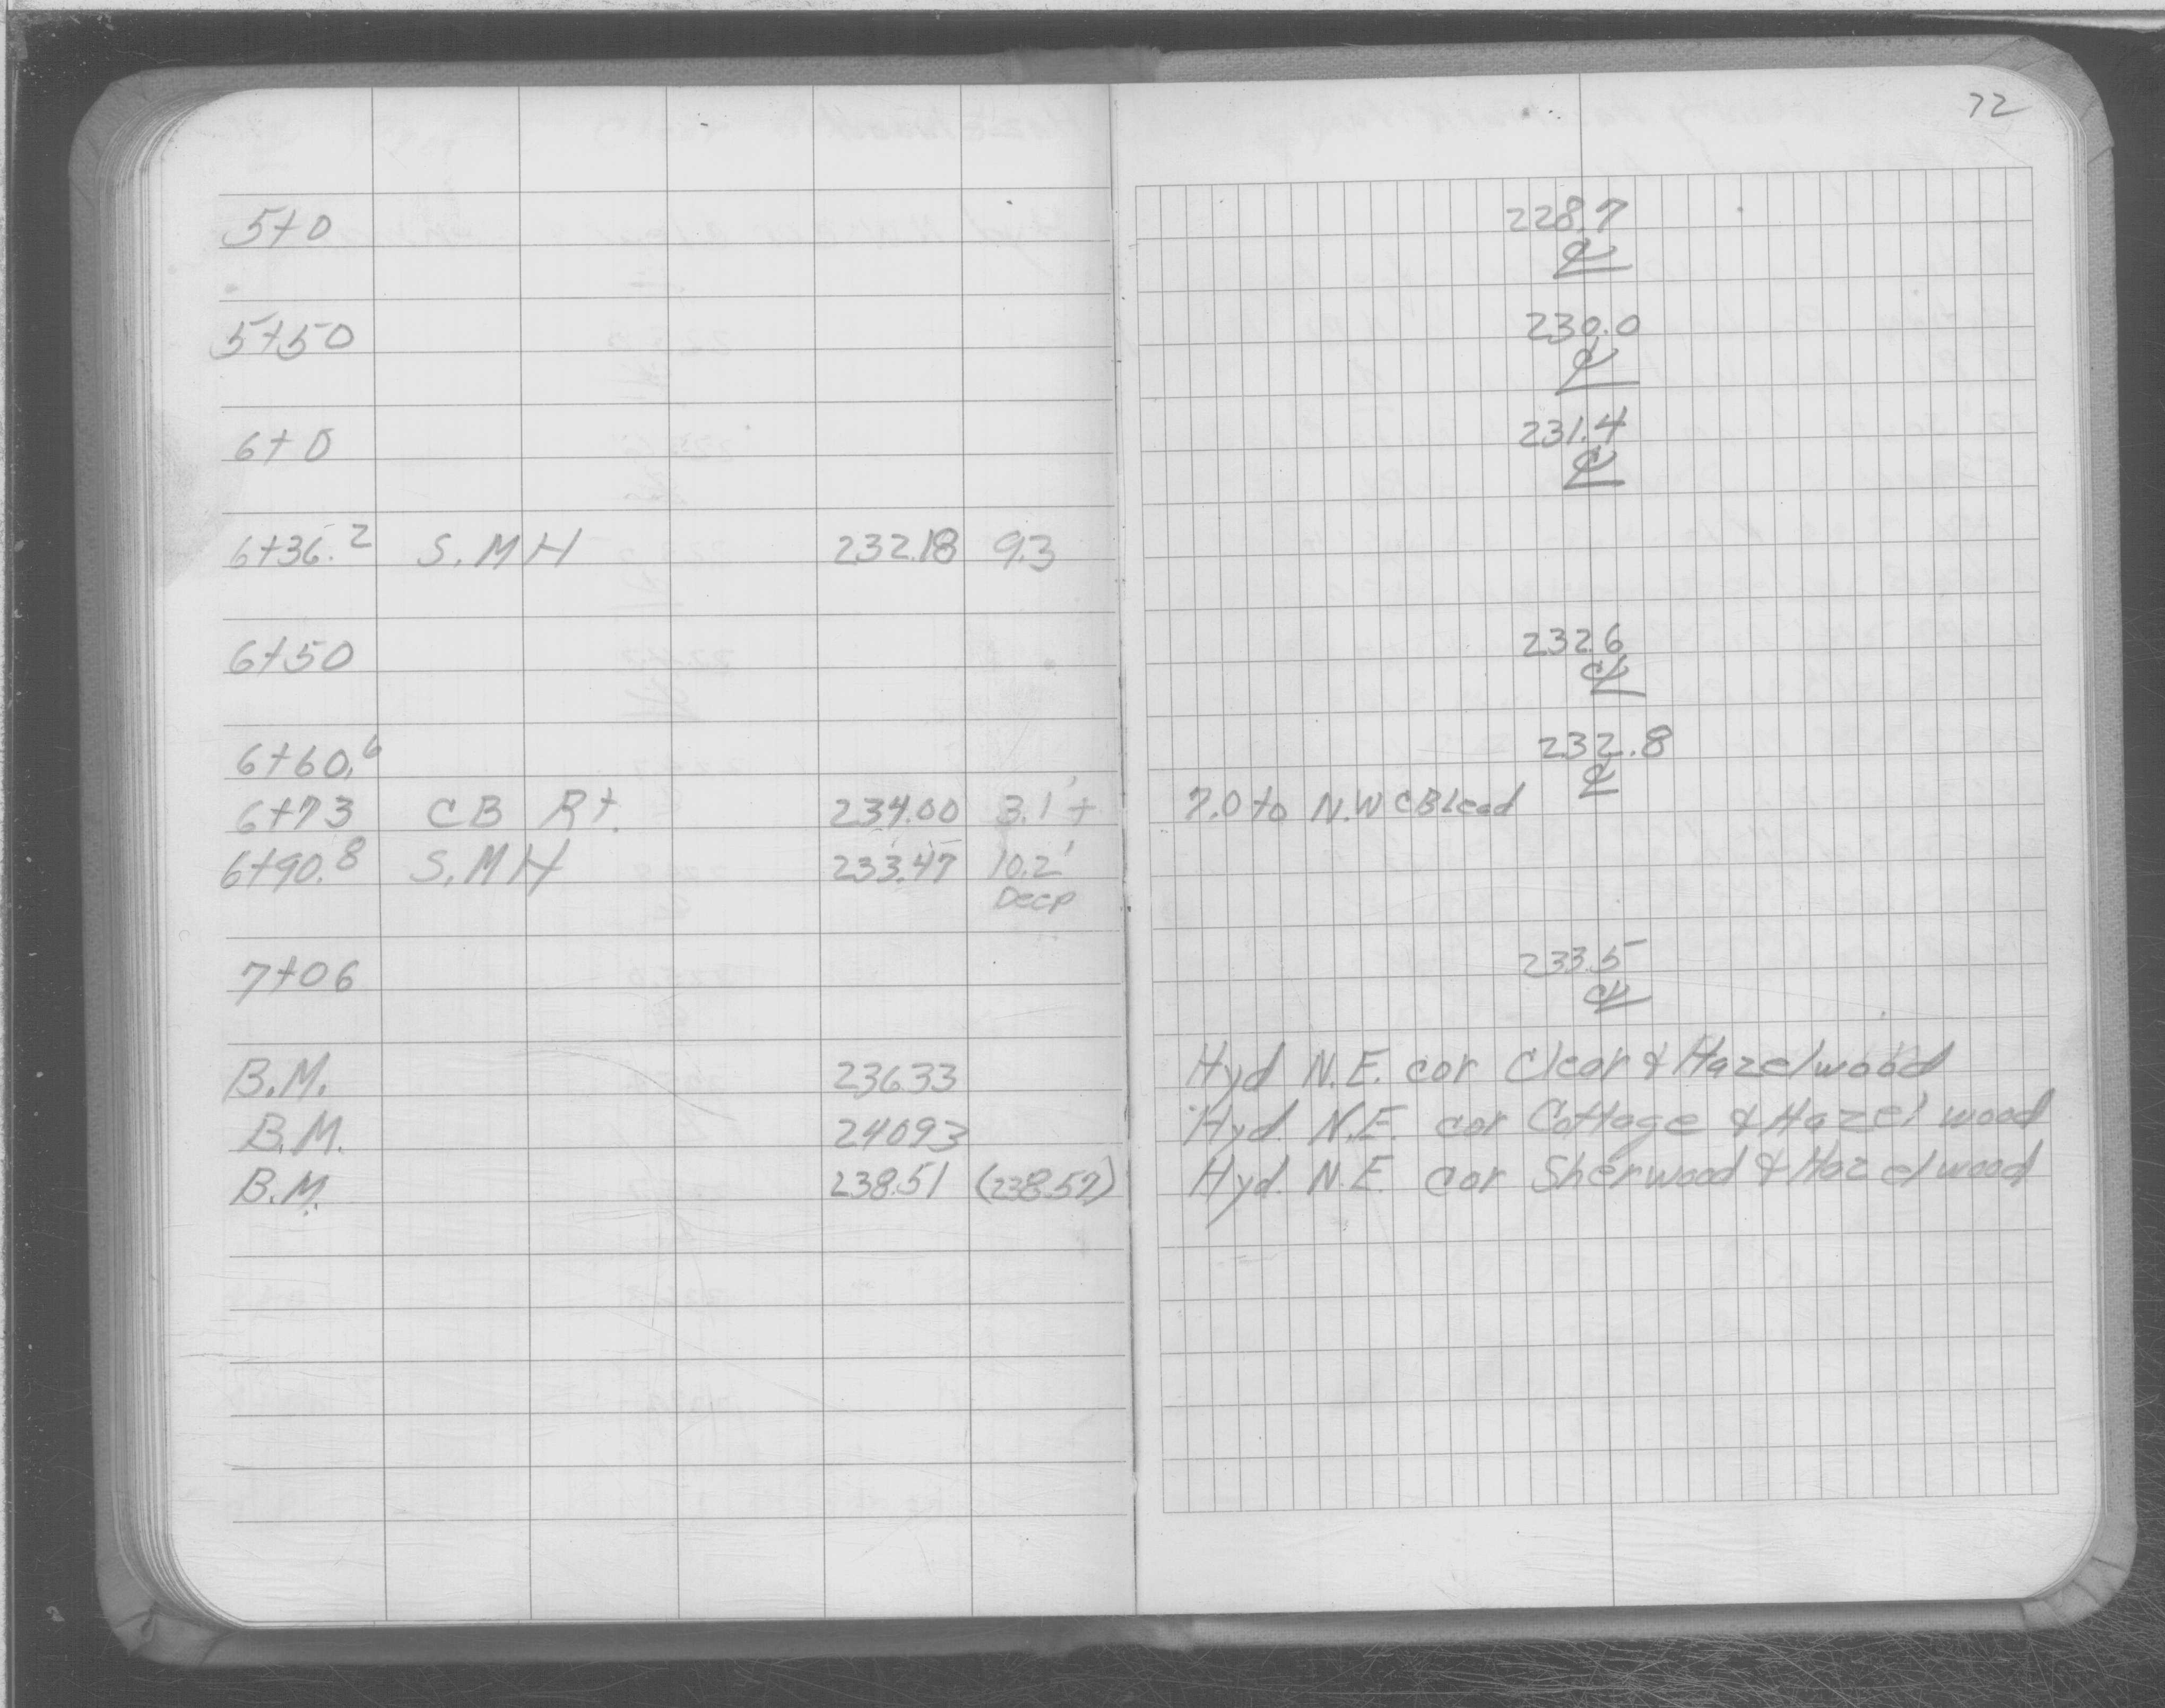 72
5+0 228.7
℄
5+50 230.0
℄
6+0 231.4
℄
6+36.2 S.MH 232.18 9.3
6+50 232.6
℄
6+60.6 232.8
℄
6+73 CB Rt. 234.00 3.1'+ 7.0 to N.W CB Lead
6+90.8 S.MH 233.47 10.2'
Deep
7+06 233.5
℄
B.M. 236.33 Hyd N.E. cor Clear & Hazelwood
B.M. 240.93 Hyd. N.E. cor Cottage & Hazel wood
B.M. 238.51 (238.57) Hyd. N.E. cor Sherwood & Hazelwood